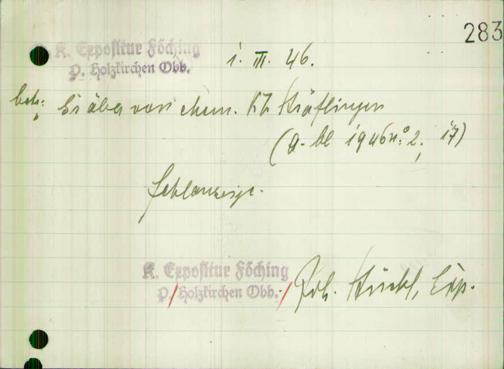 283
K. Expositur Föching
P. Holzkirchen Obb.
1. III. 46.
betr: Gräber von ehem. KZ Häftlingen
(A-bl 1946 n: 2, 17)
Fehlanzeige.
K. Expositur Föching
P. Holzkirchen Obb.
Joh. Exp.